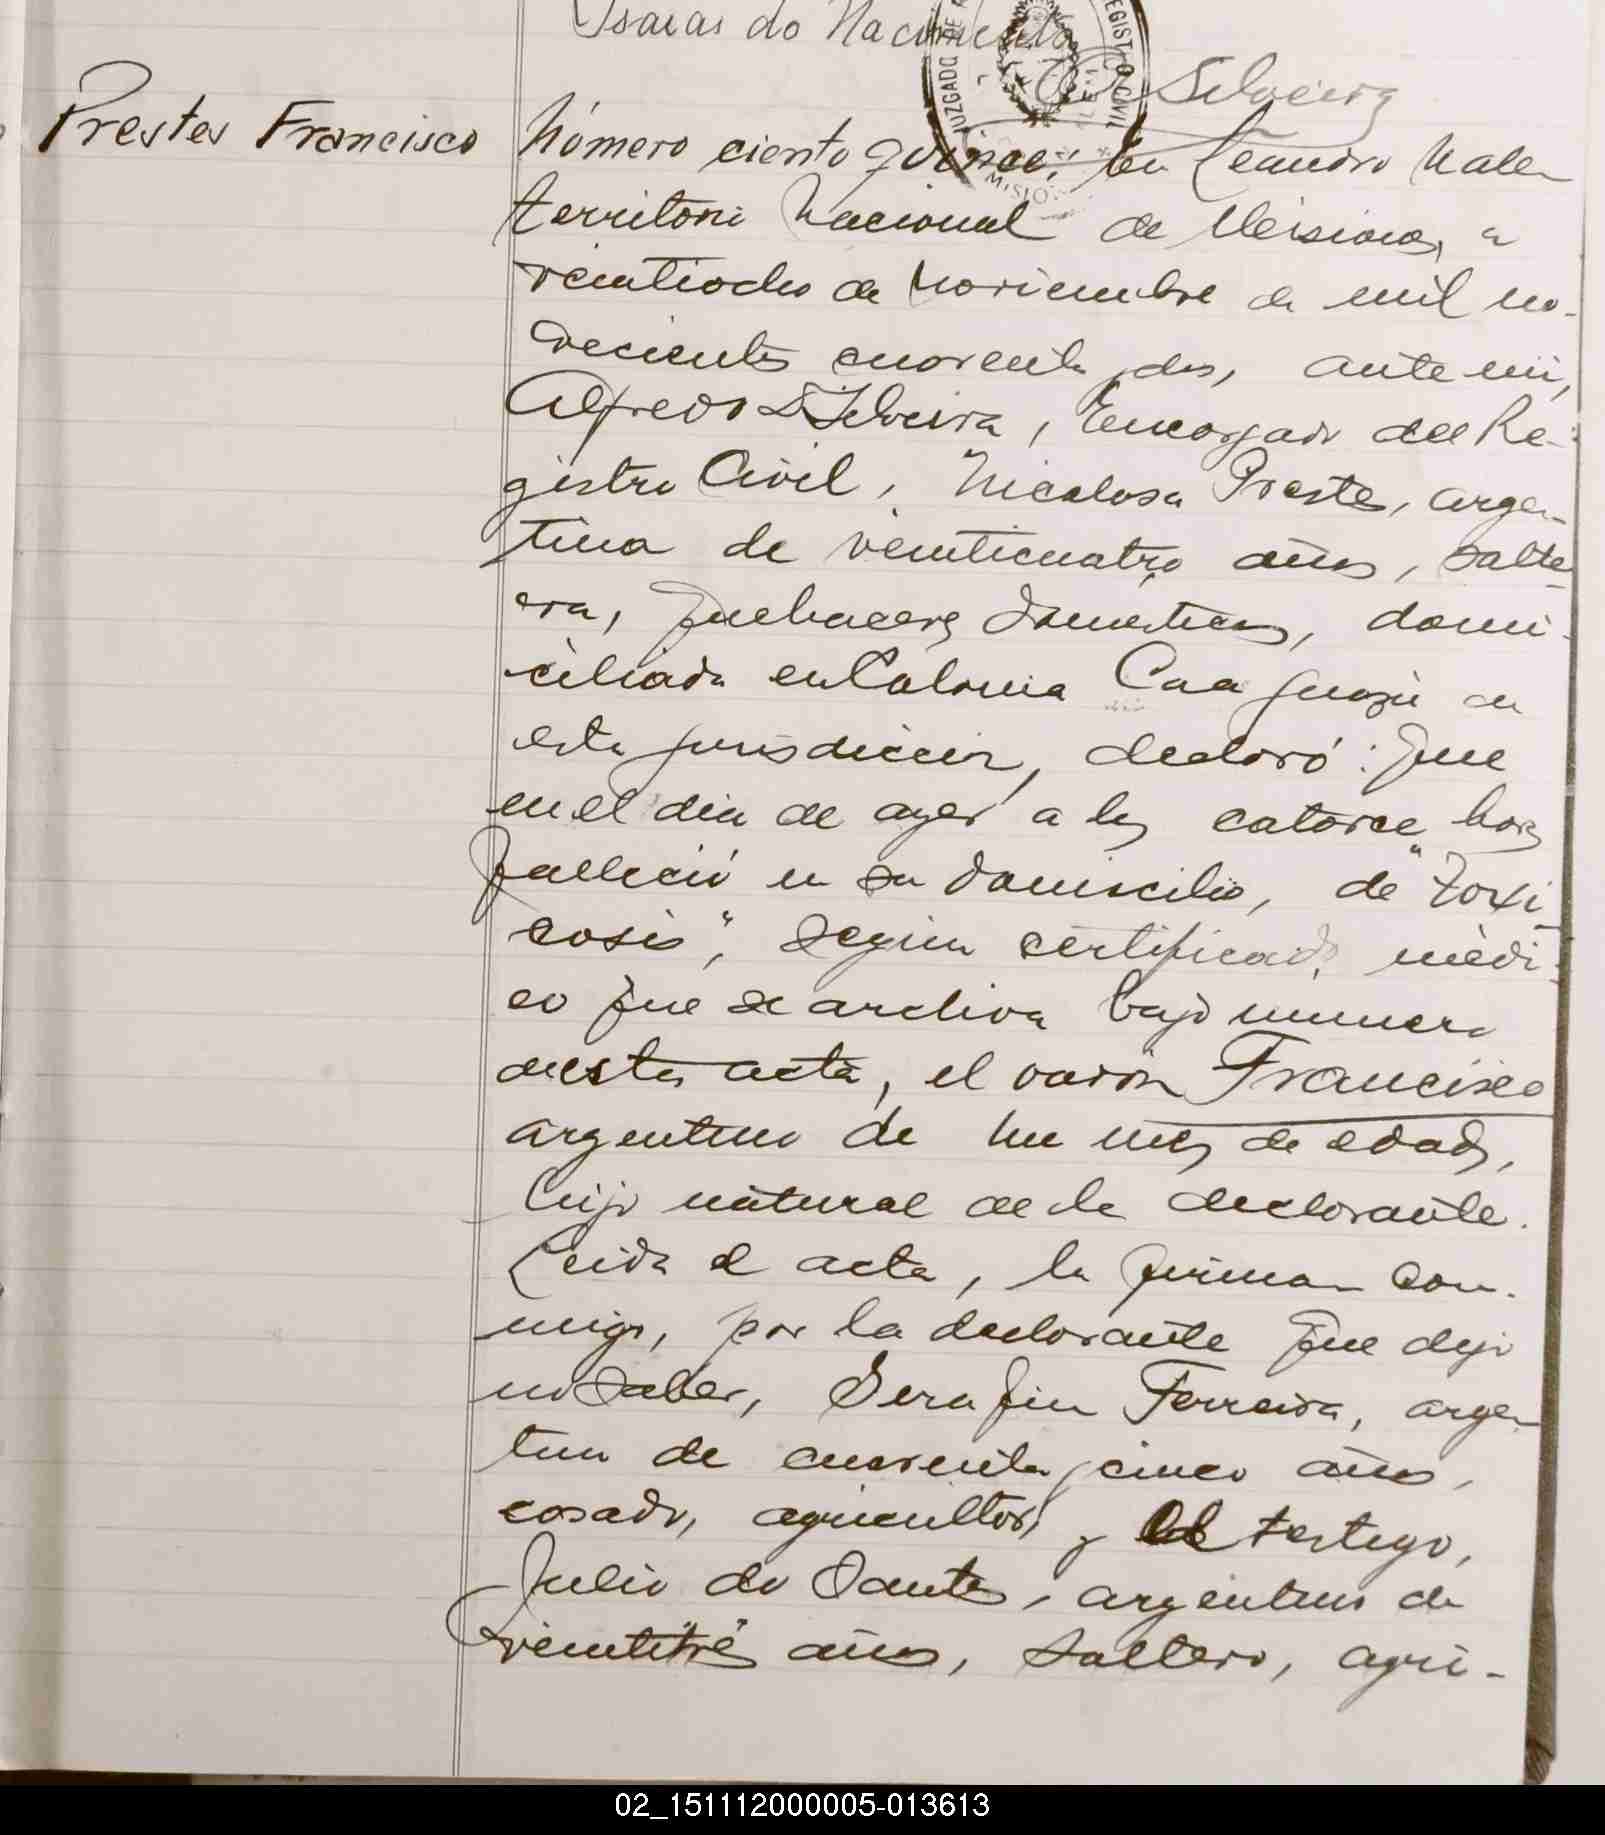 Isaias do Nacimento
A Silveira
JUZGADO DE REGISTRO CIVIL
ALEM
MISIONES
Prestes Francisco
Número ciento quince: En Leandro N Alem
territorio Nacional de Misiones, a
veintiocho de noviembre de mil no-
vecientos cuarenta y dos, ante mi,
Alfredo D Silveira, Encargado del Re-
gistro Civil, Nicolasa Prestes, argen-
tina de veinticuatro años, solte-
era, quehaceres domesticos, domi-
ciliada en Colonia Caa guazú en
esta jurisdiccion, declaró: Que
en el dia de ayer a las catorce horas
falleció en su domiscilio, de "Toxi-
cosis", según certificado médi-
co que se archiva bajo numero
de esta acta, el varón Francisco
argentino de un mes de edad,
hijo natural de la declarante.
Leida el acta, la firman con-
migo, por la declarante que dijo
no saber, Serafin Ferreira, argen-
tino de cuarenta y cinco años,
casado, agricultor, y el testigo,
Julio do Santos, argentino de
veintitrés años, soltero, agri-
02_151112000005-013613